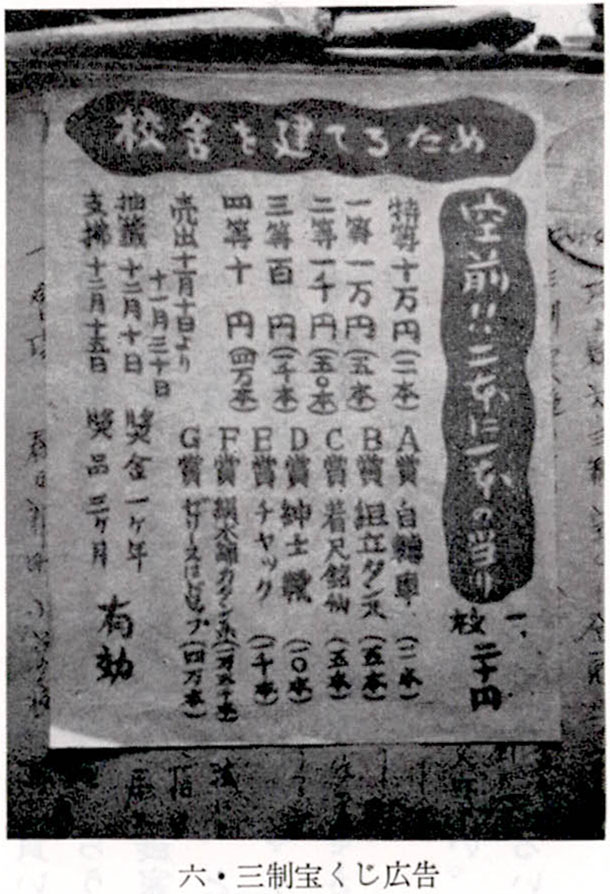 校舎を建てるため
空前!!三本に一本の当り
一枚 二十円
特等十万円(二本)
一等一万円(五本)
二等一千円(五〇本)
三等百円(一千本)
四等十円(四万本)
A賞 自転車(二本)
B賞 組立ダンス(五本)
C賞 着尺銘仙(五本)
D賞 紳士靴(一〇本)
E賞 チャック(一千本)
F賞 カタン糸
G賞 (四万本)
売出 十一月十日より
十一月三十日
抽籤 十二月十日
支拂 十二月十五日
奨金一ケ年
奨品三ケ月
有効
六・三制宝くじ広告